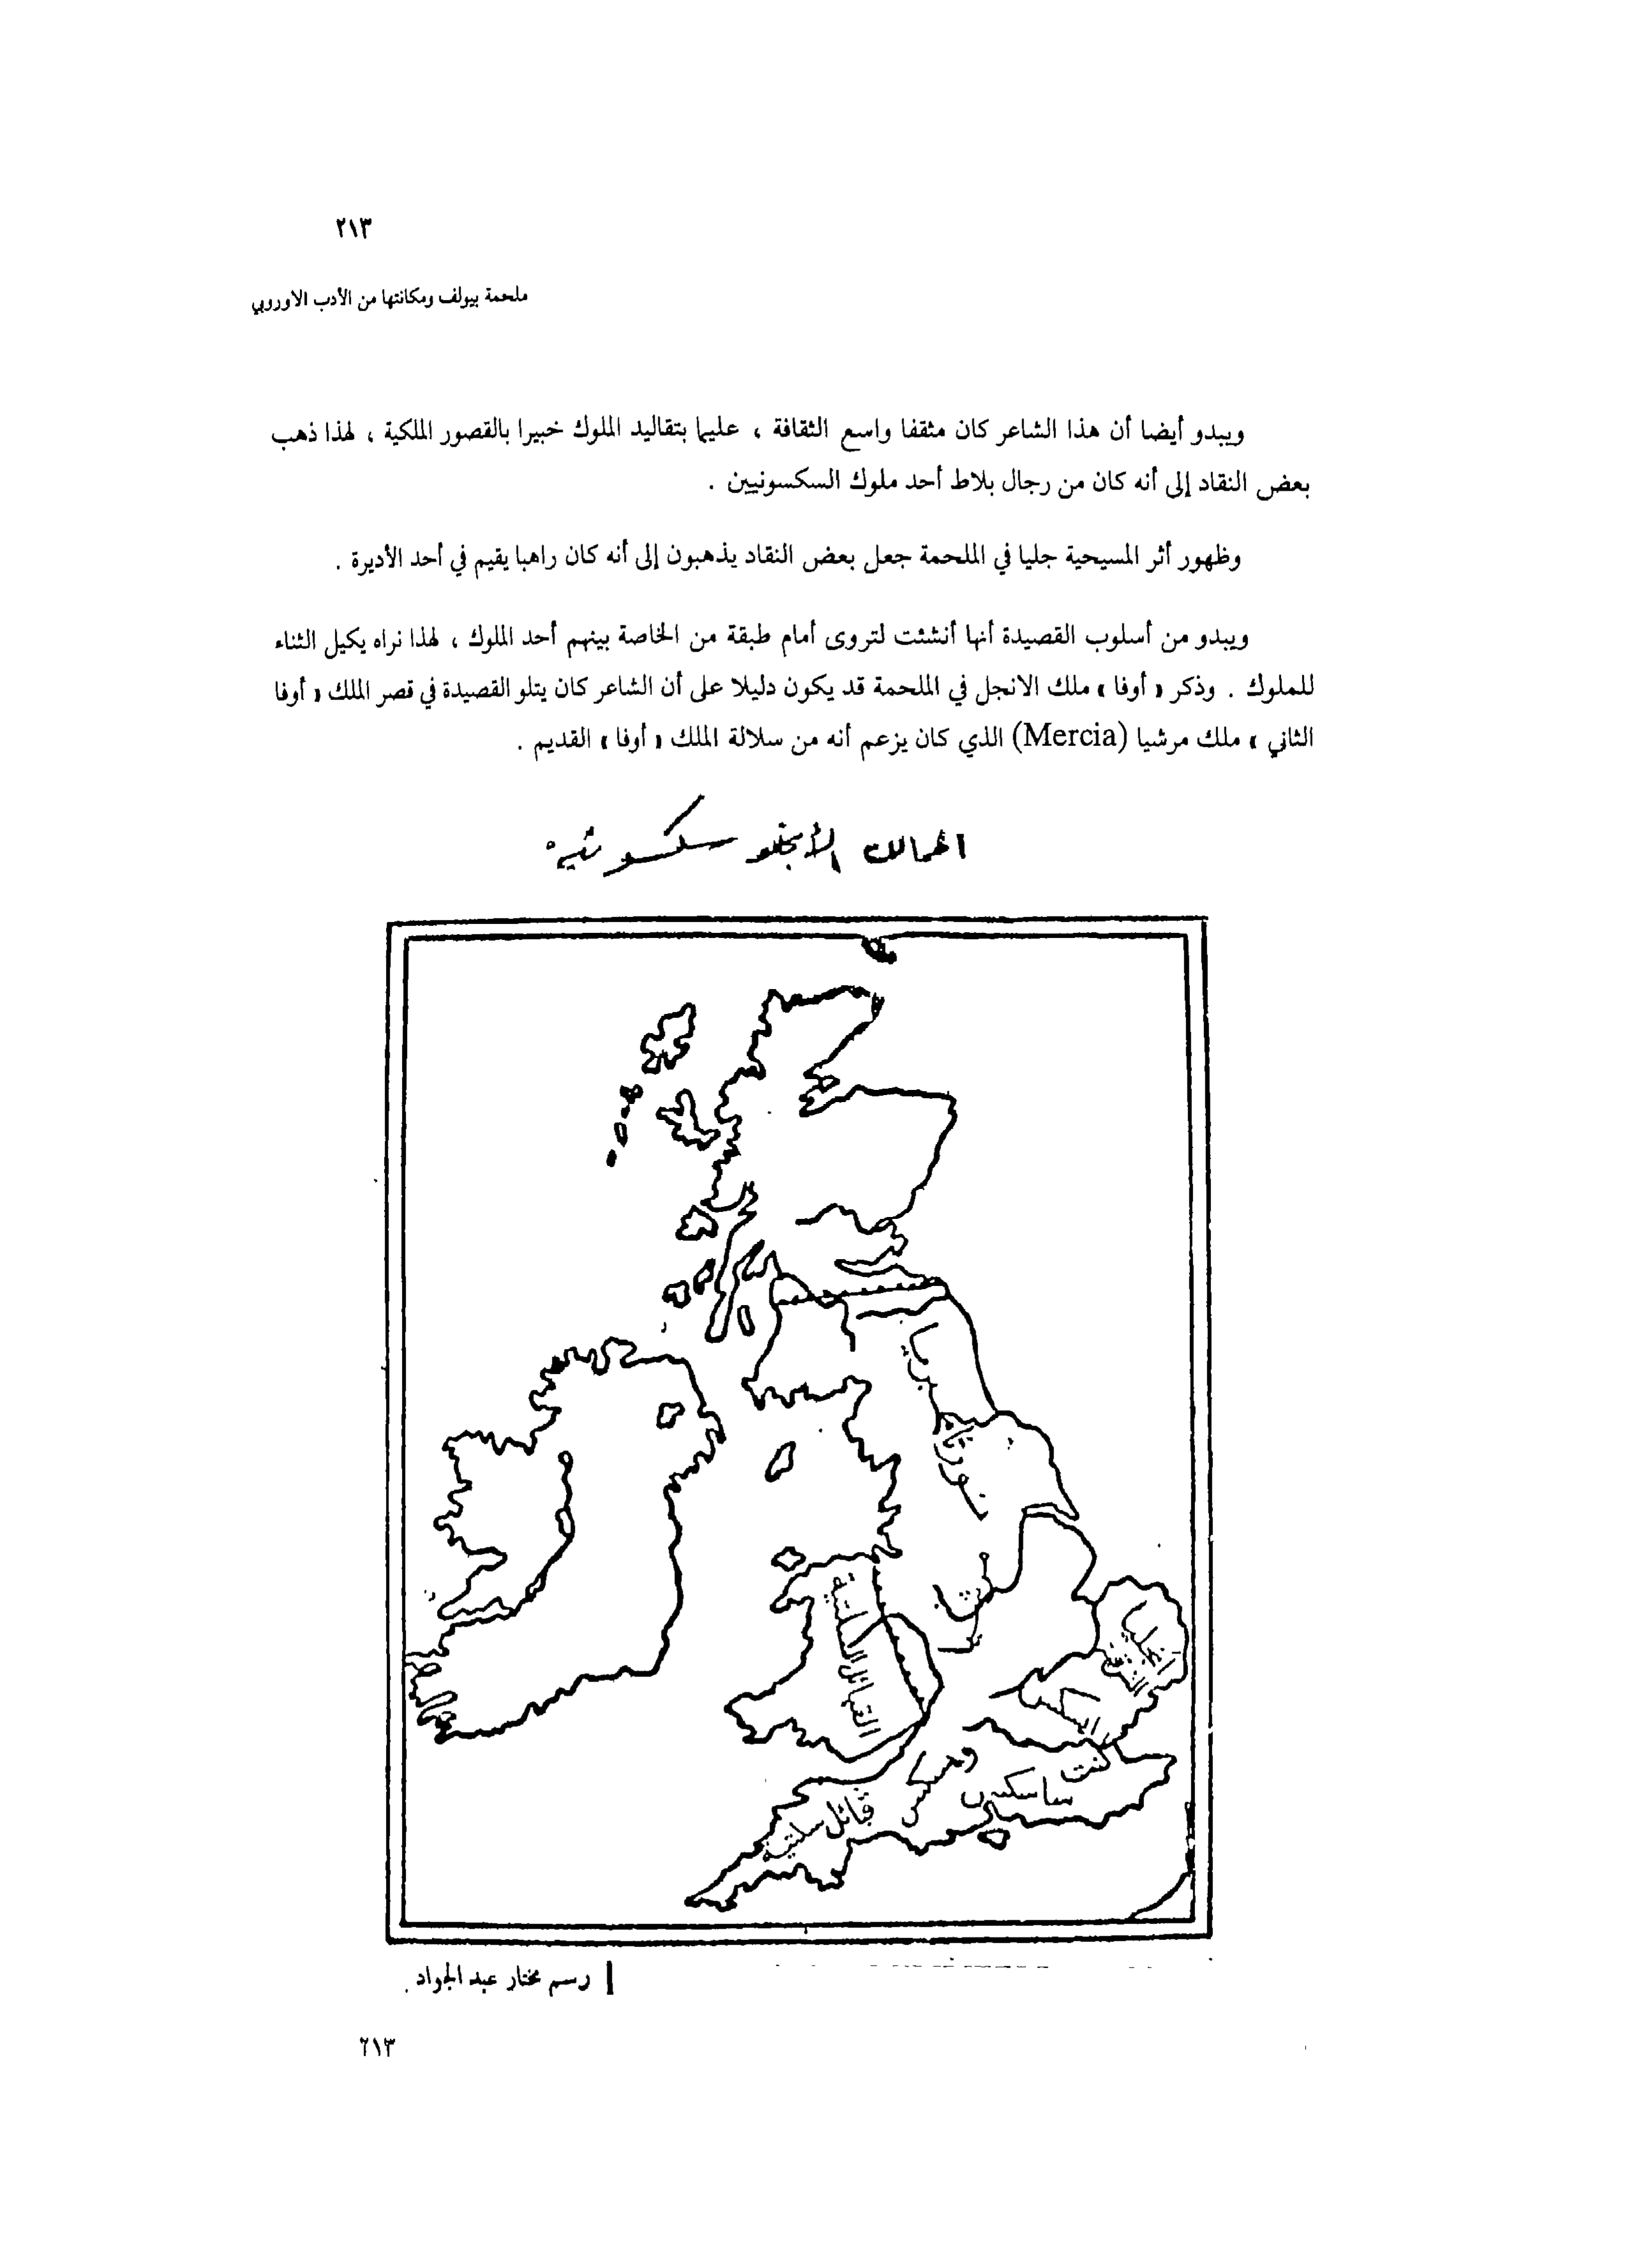 ٢١٣
ملحمة بيولف ومكانتها من الأدب الاوروبي
ويبدو أيضا أن هذا الشاعر كان مثقفا واسع الثقافة ، عليما بتقاليد الملوك خبيرا بالقصور الملكية ، لهذا ذهب
بعض النقاد إلى أنه كان من رجال بلاط أحد ملوك السكسونيين .
وظهور أثر المسيحية جليا في الملحمة جعل بعض النقاد يذهبون إلى أنه كان راهبا يقيم في أحد الأديرة .
ويبدو من أسلوب القصيدة أنها أنشئت لتروى أمام طبقة من الخاصة بينهم أحد الملوك ، لهذا نراه يكيل الثناء
للملوك . وذكر « أوفا » ملك الانجل في الملحمة قد يكون دليلا على أن الشاعر كان يتلو القصيدة في قصر الملك « أوفا
الثاني » ملك مرشيا (Mercia) الذي كان يزعم أنه من سلالة الملك « أوفا » القديم .
الممالك الأنجلو سكسونيه
نورثمبريا
القبائل السلتية
انجليا الشرقية
كنت
ساسكس
وسكس
قبائل سلتية
رسم مختار عبد الجواد .
٢١٣